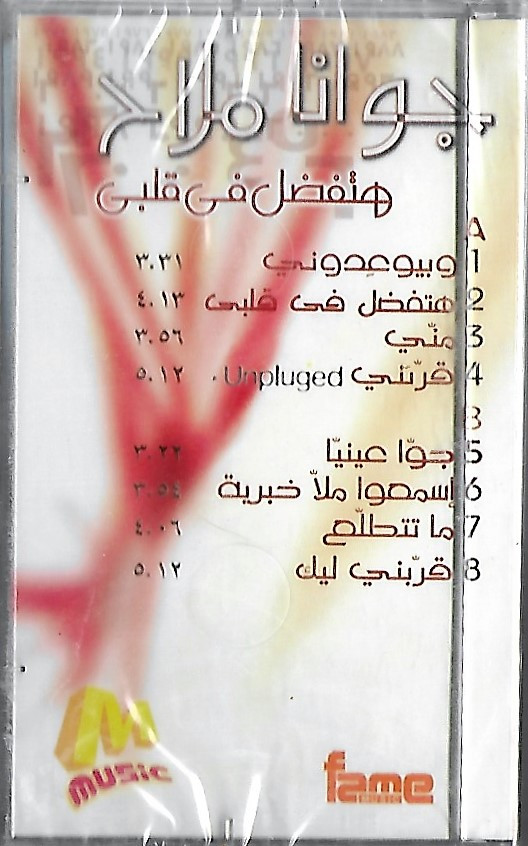 جوانا ملاح
هتفضل فى قلبى
A
1 وبيوعدوني ٣.٣١
2 هتفضل فى قلبى ٤.١٣
3 منّي ٣.٥٦
4 قرّبني Unpluged ٥.١٢
B
5 جوّا عينيّا ٣.٢٢
6 إسمعوا ملاّ خبرية ٣.٥٤
7 ما تتطلّع ٤.٠٦
8 قرّبني ليك ٥.١٢
M
MUSIC
fame
MUSIC